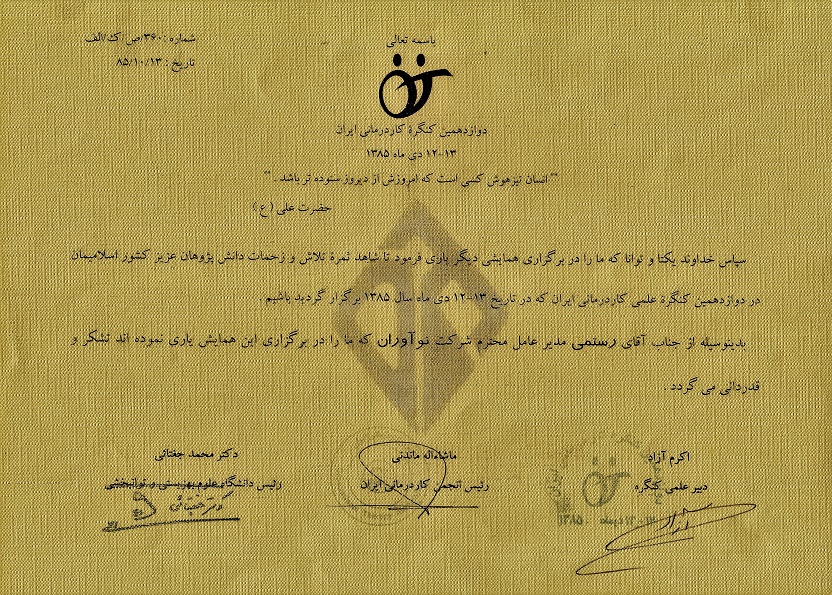 باسمه تعالی
شماره : ۳۶۰/ص/ک/الف
تاریخ : ۸۵/۱۰/۱۳
دوازدهمین کنگرۀ کاردرمانی ایران
۱۲-۱۳ دی ماه ۱۳۸۵
" انسان تیزهوش کسی است که امروزش از دیروز ستوده تر باشد . "
حضرت علی ( ع )
سپاس خداوند یکتا و توانا که ما را در برگزاری همایشی دیگر یاری فرمود تا شاهد ثمرۀ تلاش و زحمات دانش پژوهان عزیز کشور اسلامیمان
در دوازدهمین کنگرۀ علمی کاردرمانی ایران که در تاریخ ۱۳-۱۲ دی ماه سال ۱۳۸۵ برگزار گردید باشیم .
بدینوسیله از جناب آقای رستمی مدیر عامل محترم شرکت نوآوران که ما را در برگزاری این همایش یاری نموده اند تشکر و
قدردانی می گردد .
اکرم آزاد
دبیر علمی کنگره
ماشاءاله ماندنی
رئیس انجمن کاردرمانی ایران
دکتر محمد جغتائی
رئیس دانشگاه علوم بهزیستی و توانبخشی
۱۲-۱۳ دیماه ۱۳۸۵